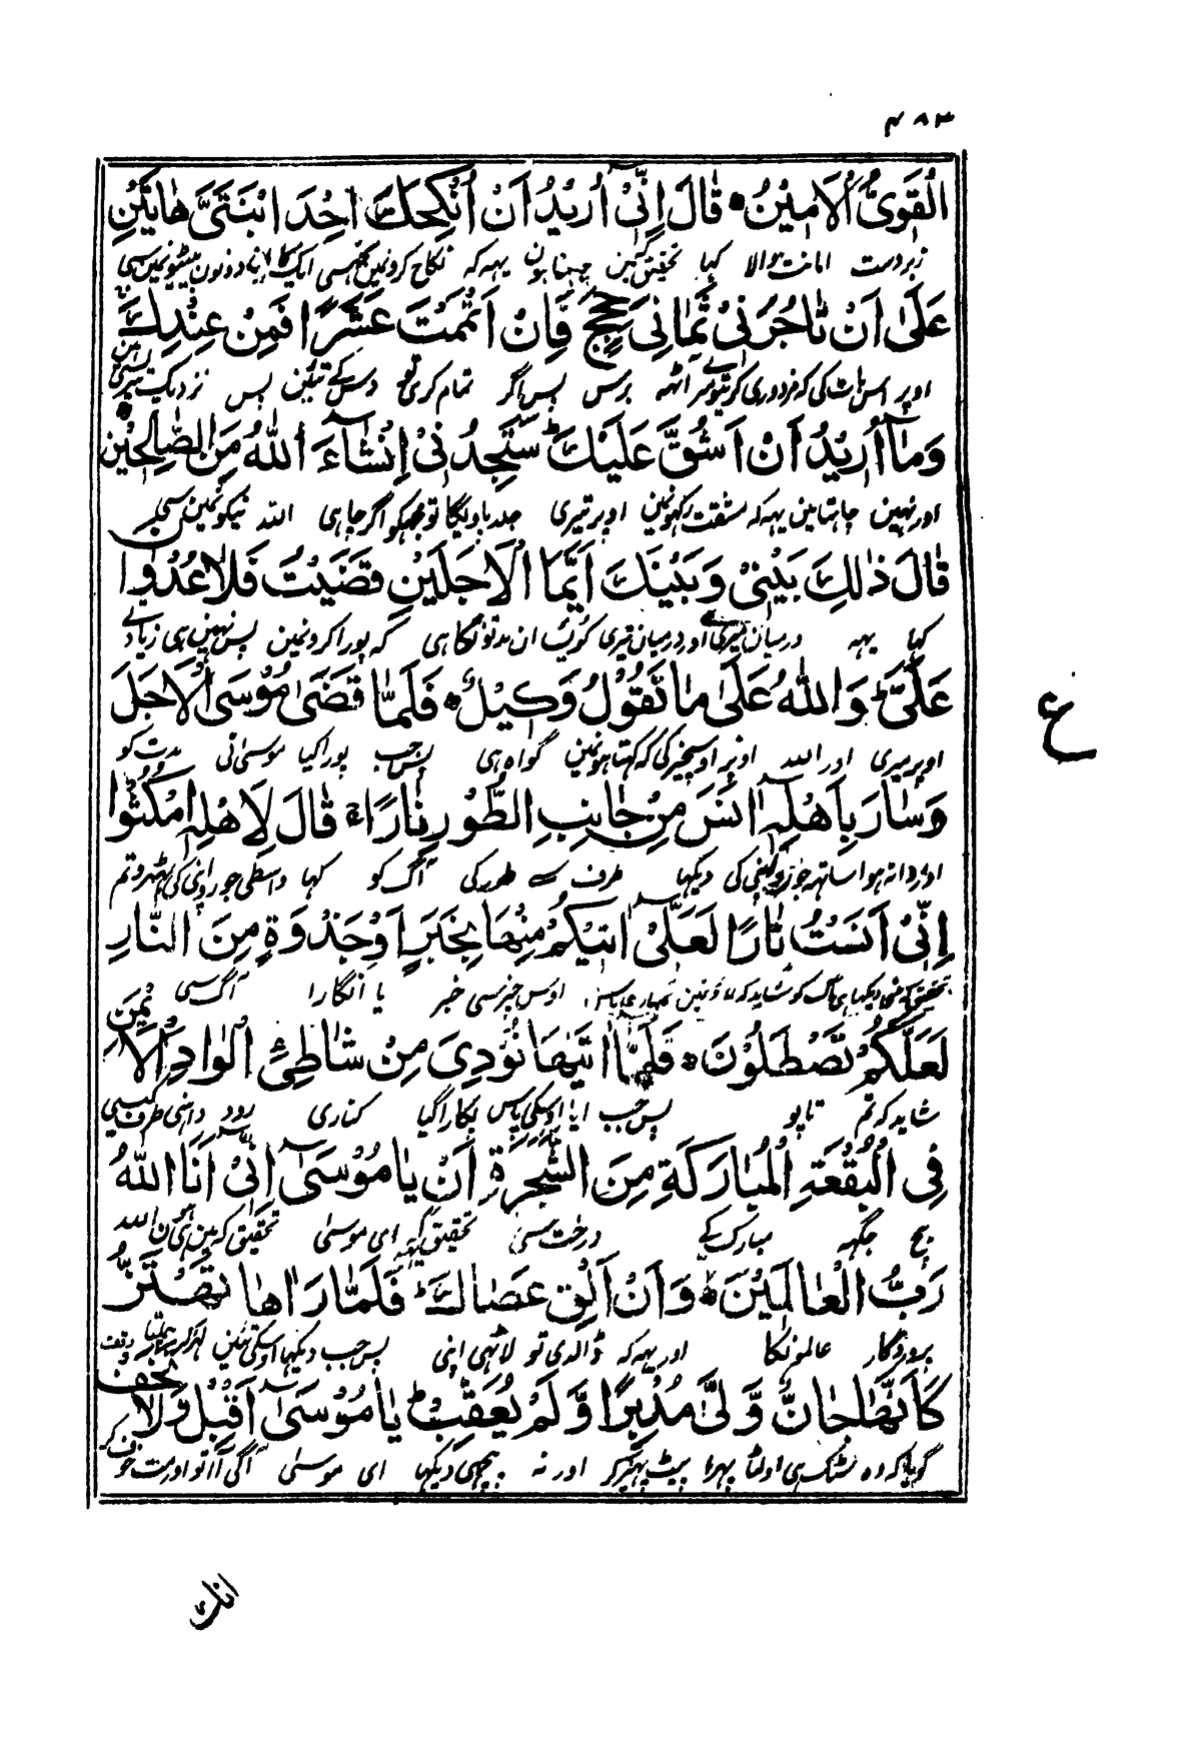 ۴۸۳
الْقَوِيُّ الْاَمِيْنُ قَالَ اِنِّيْۤ اُرِيْدُ اَنْ اُنْكِحَكَ اِحْدَ ابْنَتَيَّ هَاتَيْنِ
زبردست امانت والا کہا تحقیق مین چہتا ہون یہہ کہ نکاح کرونمین
عَلٰۤى اَنْ تَاْجُرَنِيْ ثَمَانِيَ حِجَجٍ فَاِنْ اَتْمَمْتَ عَشْرًا فَمِنْ عِنْدِكَ
اوپر اس بات کی کہ مزدوری کرے تو میری آٹہہ برس پس اگر تمام کری تو دس کے تئین پس نزدیک تیری
وَمَاۤ اُرِيْدُ اَنْ اَشُقَّ عَلَيْكَ سَتَجِدُنِيْۤ اِنْشَآءَ اللّٰهُ مِنَ الصَّالِحِيْنَ
اور نہین چاہتا مین یہہ کہ مشقت رکہونمین اوپر تیری جلد پاویگا تو مجہکو اگر چاہی اللہ نیکونمین سی
قَالَ ذٰلِكَ بَيْنِيْ وَبَيْنَكَ اَيَّمَا الْاَجَلَيْنِ قَضَيْتُ فَلَا عُدْوَانَ
کہا یہہ درمیان میرے اور درمیان تیری کونسی ان مدتونکا ہی کہ پورا کرونمین پس نہین ہی زیادتے
عَلَيَّ وَاللّٰهُ عَلٰى مَا نَقُوْلُ وَكِيْلٌ فَلَمَّا قَضَى مُوْسَى الْاَجَلَ
اوپر میری اور اللہ اوپر اوسچیز کی کہ کہتا ہونمین گواہ ہی پس جب پورا کیا موسیٰ نی مدت کو
ع
وَسَارَ بِاَهْلِهٖۤ اٰنَسَ مِنْ جَانِبِ الطُّوْرِ نَارًا قَالَ لِاَهْلِهِ امْكُثُوْا
اور روانہ ہوا ساتہہ جورو اپنی کی دیکہا طرف سے طور کی آگ کو کہا واسطی جورو اپنی کی ٹہرو تم
اِنِّيْۤ اٰنَسْتُ نَارًا لَعَلِّيْۤ اٰتِيْكُمْ مِنْهَا بِخَبَرٍ اَوْ جَذْوَةٍ مِنَ النَّارِ
تحقیق دیکہا ہی آگ کو شاید کہ لاؤنمین اوس چیز سی خبر یا انگارا آگ سی
لَعَلَّكُمْ تَصْطَلُوْنَ فَلَمَّاۤ اَتٰىهَا نُوْدِيَ مِنْ شَاطِئِ الْوَادِ الْاَيْمَنِ
شاید کہ تم تاپو پس جب ایا اوسکی پاس پکارا گیا کناری رود داہنی طرف کیسی
فِي الْبُقْعَةِ الْمُبَارَكَةِ مِنَ الشَّجَرَةِ اَنْ يَا مُوْسٰىۤ اِنِّيْۤ اَنَا اللّٰهُ
بیچ جگہہ مبارک کے درخت سی تحقیق یہہ ای موسیٰ تحقیق کہ مین ہی ہون اللہ
رَبُّ الْعَالَمِيْنَ وَاَنْ اَلْقِ عَصَاكَ فَلَمَّا رَاٰهَا تَهْتَزُّ
پروردگار عالمونکا اور یہہ کہ ڈالدی تو لاٹہی اپنی پس جب دیکہا اوسکی تئین
كَاَنَّهَا جَانٌّ وَّلّٰى مُدْبِرًا وَّلَمْ يُعَقِّبْ يَا مُوْسٰىۤ اَقْبِلْ وَلَا تَخَفْ
گویا کہ وہ اولٹا پہرا پیٹہہ پہیر کر اور نہ پیچہی دیکہا ای موسیٰ آگی آ تو اور مت خوف کر
انك